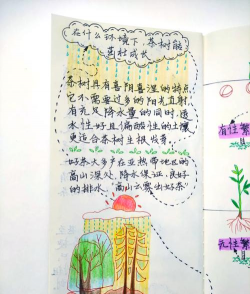 在什么环境下,茶树能
茁壮成长
茶树具有喜阴喜湿的特点
它不需要过多的阳光直射,
有充足降水量的同时,透
水性好且偏酸性的土壤
更适合茶树生根发芽。
好茶大多产在亚热带地区的
高山深处,降水保证,良好
的排水,“高山云雾出好茶”
有性繁